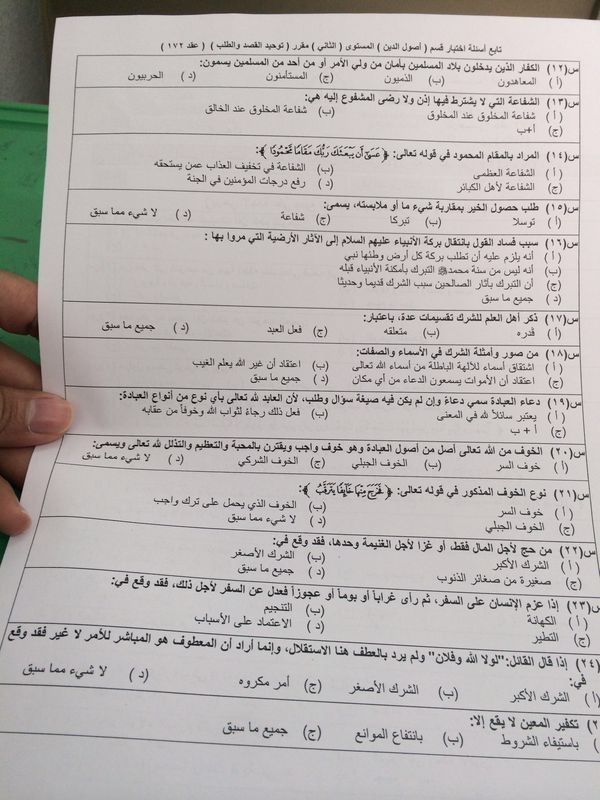 تابع أسئلة اختبار قسم ( أصول الدين ) المستوى ( الثاني ) مقرر ( توحيد القصد والطلب ) ( عقد ١٧٢ )
س(١٢) الكفار الذين يدخلون بلاد المسلمين بأمان من ولي الأمر أو من أحد من المسلمين يسمون:
(أ ) المعاهدون (ب) الذميون (ج) المستأمنون (د ) الحربيون
س(١٣) الشفاعة التي لا يشترط فيها إذن ولا رضى المشفوع إليه هي:
(أ ) شفاعة المخلوق عند المخلوق (ب) شفاعة المخلوق عند الخالق
(ج) أ+ب
س(١٤) المراد بالمقام المحمود في قوله تعالى: ﴿ عَسَىٰ أَن يَبْعَثَكَ رَبُّكَ مَقَامًا مَّحْمُودًا ﴾:
(أ ) الشفاعة العظمى (ب) الشفاعة في تخفيف العذاب عمن يستحقه
(ج) الشفاعة لأهل الكبائر (د ) رفع درجات المؤمنين في الجنة
س(١٥) طلب حصول الخير بمقاربة شيء ما أو ملابسته، يسمى:
(أ) توسلا (ب) تبركا (ج) شفاعة (د ) لا شيء مما سبق
س(١٦) سبب فساد القول بانتقال بركة الأنبياء عليهم السلام إلى الآثار الأرضية التي مروا بها :
(أ ) أنه يلزم عليه أن تطلب بركة كل أرض وطئها نبي
(ب) أنه ليس من سنة محمد ﷺ التبرك بأمكنة الأنبياء قبله
(ج) أن التبرك بآثار الصالحين سبب الشرك قديما وحديثا
(د ) جميع ما سبق
س(١٧) ذكر أهل العلم للشرك تقسيمات عدة، باعتبار:
(أ ) قدره (ب) متعلقه (ج) فعل العبد (د ) جميع ما سبق
س(١٨) من صور وأمثلة الشرك في الأسماء والصفات:
(أ ) اشتقاق أسماء للآلهة الباطلة من أسماء الله تعالى (ب) اعتقاد أن غير الله يعلم الغيب
(ج) اعتقاد أن الأموات يسمعون الدعاء من أي مكان (د ) جميع ما سبق
س(١٩) دعاء العبادة سمي دعاءً وإن لم يكن فيه صيغة سؤال وطلب، لأن العابد لله تعالى بأي نوع من أنواع العبادة:
(أ ) يعتبر سائلاً لله في المعنى (ب) فعل ذلك رجاءً لثواب الله وخوفاً من عقابه
(ج) أ + ب
س(٢٠) الخوف من الله تعالى أصل من أصول العبادة وهو خوف واجب ويقترن بالمحبة والتعظيم والتذلل لله تعالى ويسمى:
(أ ) خوف السر (ب) الخوف الجبلي (ج) الخوف الشركي (د ) لا شيء مما سبق
س(٢١) نوع الخوف المذكور في قوله تعالى: ﴿ فَخَرَجَ مِنْهَا خَائِفًا يَتَرَقَّبُ ﴾:
(أ ) خوف السر (ب) الخوف الذي يحمل على ترك واجب
(ج) الخوف الجبلي (د ) لا شيء مما سبق
س(٢٢) من حج لأجل المال فقط، أو غزا لأجل الغنيمة وحدها، فقد وقع في:
(أ ) الشرك الأكبر (ب) الشرك الأصغر
(ج) صغيرة من صغائر الذنوب (د ) جميع ما سبق
س(٢٣) إذا عزم الإنسان على السفر، ثم رأى غراباً أو بوماً أو عجوزاً فعدل عن السفر لأجل ذلك، فقد وقع في:
(أ ) الكهانة (ب) التنجيم
(ج) التطير (د ) الاعتماد على الأسباب
(٢٤) إذا قال القائل:"لولا الله وفلان" ولم يرد بالعطف هنا الاستقلال، وإنما أراد أن المعطوف هو المباشر للأمر لا غير فقد وقع
في:
(أ ) الشرك الأكبر (ب) الشرك الأصغر (ج) أمر مكروه (د ) لا شيء مما سبق
تكفير المعين لا يقع إلا:
باستيفاء الشروط (ب) بانتفاع الموانع (ج) جميع ما سبق